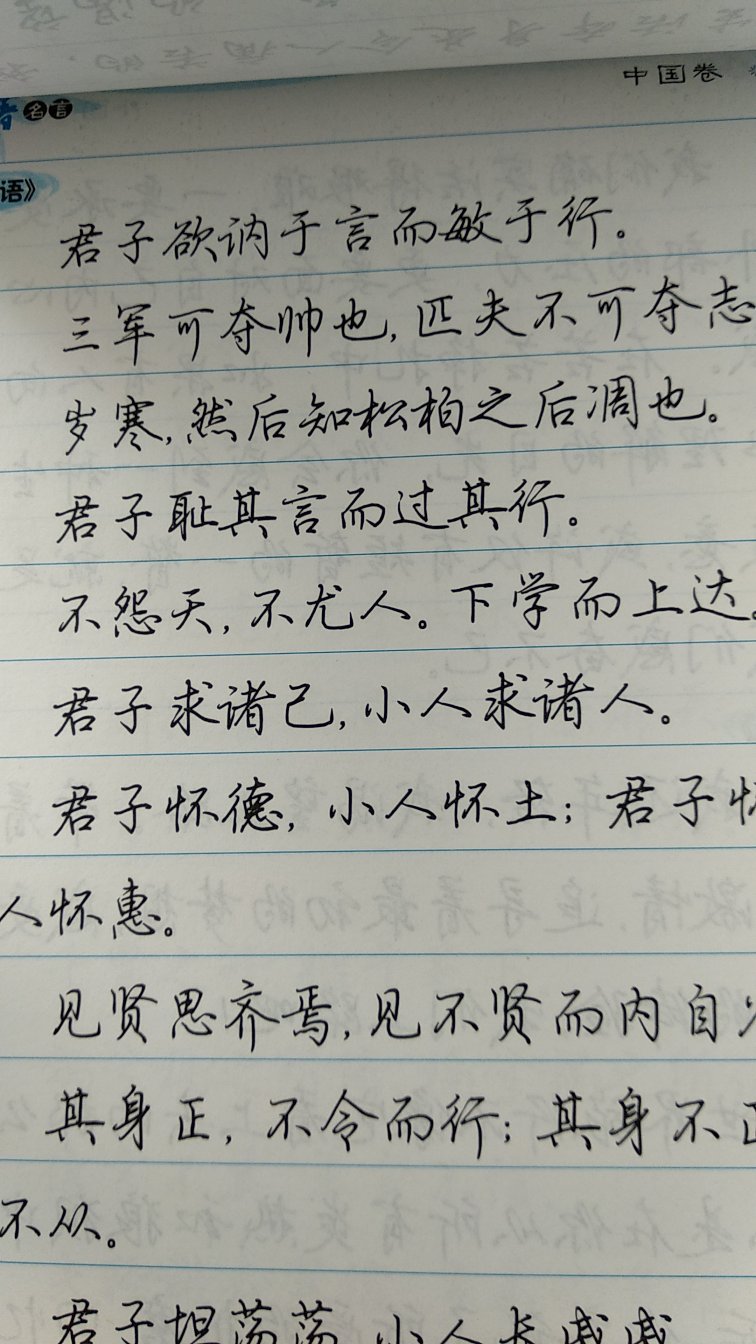 中国卷
名言
语》
君子欲讷于言而敏于行。
三军可夺帅也,匹夫不可夺志
岁寒,然后知松柏之后凋也。
君子耻其言而过其行。
不怨天,不尤人。下学而上达。
君子求诸己,小人求诸人。
君子怀德,小人怀土;君子怀
人怀惠。
见贤思齐焉,见不贤而内自
其身正,不令而行;其身不正
不从。
君子坦荡荡,小人长戚戚